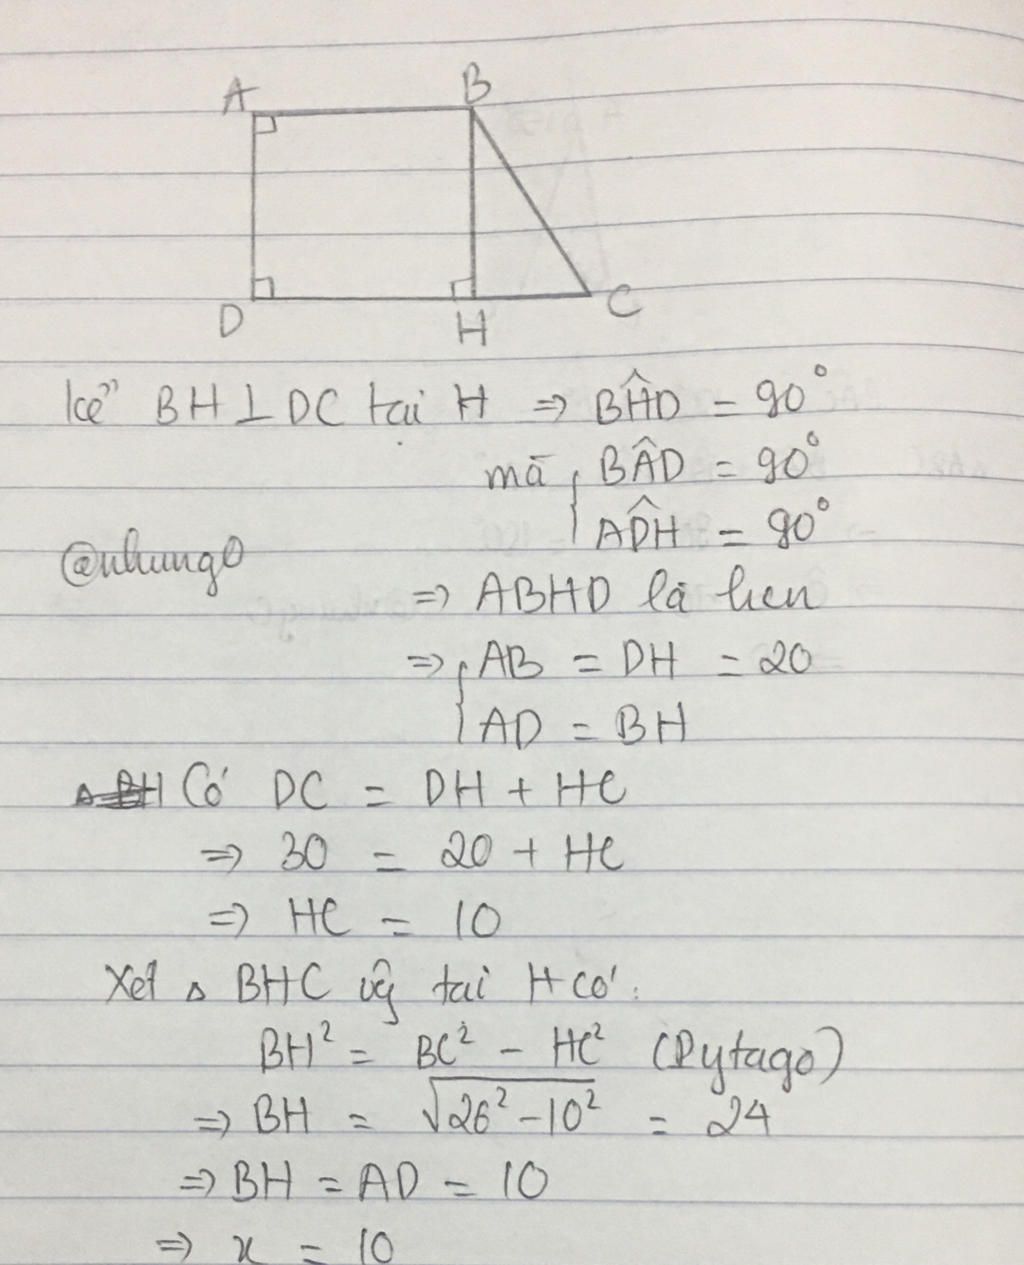 A B
D H C
kẻ BH ⊥ DC tại H ⇒ BĤD = 90°
mà { BÂD = 90°
AD̂H = 90°
@nhung0
⇒ ABHD là hcn
⇒ { AB = DH = 20
AD = BH
Có DC = DH + HC
⇒ 30 = 20 + HC
⇒ HC = 10
Xét △ BHC vg tại H có:
BH² = BC² - HC² (Pytago)
⇒ BH = √26² - 10² = 24
⇒ BH = AD = 10
⇒ x = 10